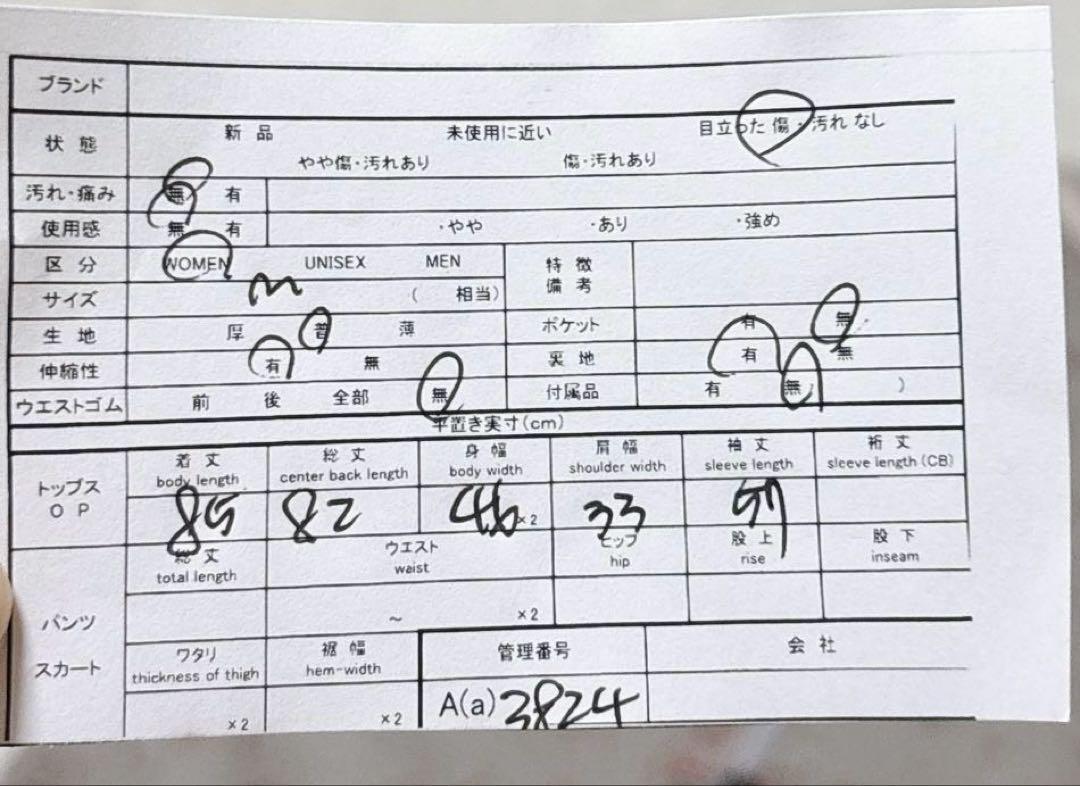 ブランド
状態 新品 未使用に近い 目立った傷・汚れなし
やや傷・汚れあり 傷・汚れあり
汚れ・痛み 無 有
使用感 無 有 ・やや ・あり ・強め
区分 WOMEN UNISEX MEN 特徴
備考
サイズ M ( 相当)
生地 厚 普 薄 ポケット 有 無
伸縮性 有 無 裏地 有 無
ウエストゴム 前 後 全部 無 付属品 有 無 )
平置き実寸(cm)
着丈 総丈 身幅 肩幅 袖丈 裄丈
body length center back length body width shoulder width sleeve length sleeve length (CB)
トップス
OP
85 82 46 ×2 33 57
総丈 ウエスト ヒップ 股上 股下
total length waist hip rise inseam
パンツ
スカート
~ ×2
ワタリ 裾幅 管理番号 会社
thickness of thigh hem-width
×2 ×2 A(a) 3824